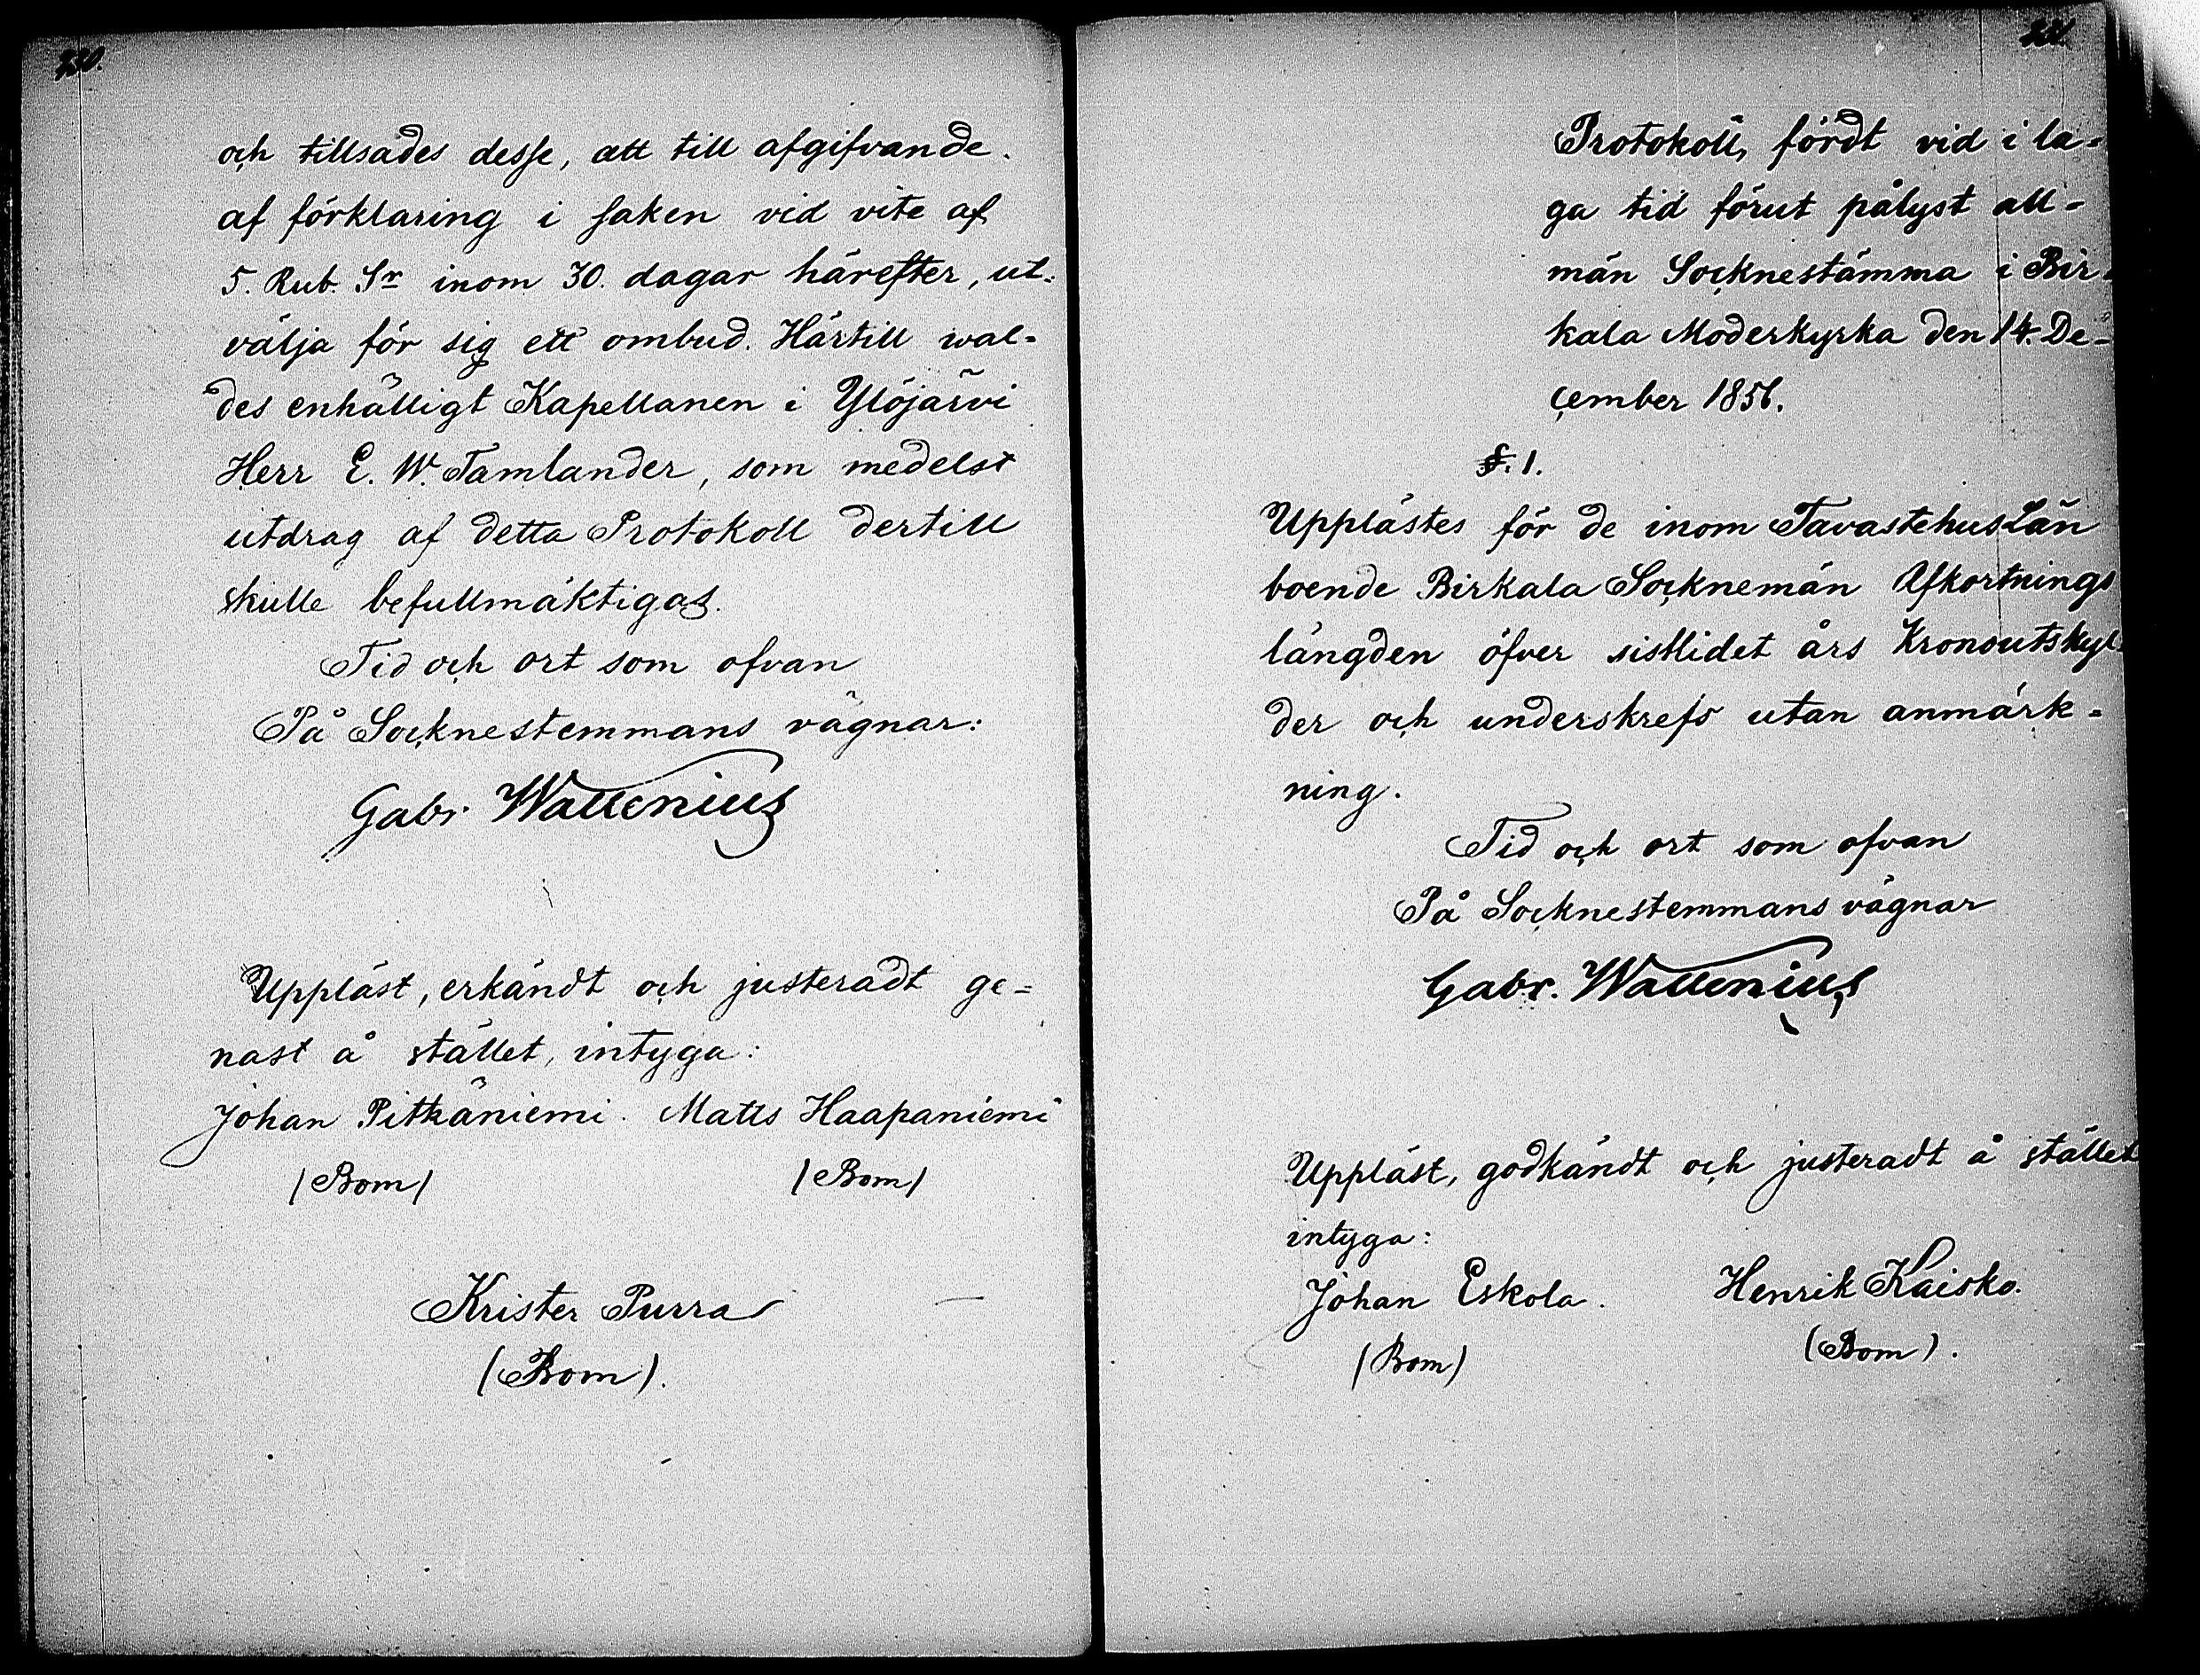 230.
och tillsades desse, att till afgifvande
af förklaring i saken vid vite af
5. Rub. Sr inom 30. dagar härefter, ut-
välja för sig ett ombud. Härtill wal-
des enhälligt Kapellanen i Ylöjärvi
Herr E. W. Tamlander, som medelst
utdrag af detta Protokoll dertill
skulle befullmäktigas.
Tid och ort som ofvan
På Socknestemmans vägnar:
Gabr. Wallenius
Uppläst, erkändt och justeradt ge-
nast å stället, intyga:
Johan Pitkäniemi. Matts Haapaniemi
/Bom/ /Bom/
Krister Purra
(Bom).
231.
Protokoll, fördt vid i la-
ga tid förut pålyst all-
män Socknestämma i Bir-
kala Moderkyrka den 14. De-
cember 1856.
§. 1.
Upplästes för de inom Tavastehus Län
boende Birkala Socknemän Afkortnings
längden öfver sistlidet års Kronoutskyl-
der och underskrefs utan anmärk-
ning.
Tid och ort som ofvan
På Socknestemmans vägnar
Gabr. Wallenius
Uppläst, godkändt och justeradt å stället
intyga:
Johan Eskola. Henrik Kaisko.
(Bom) (Bom).